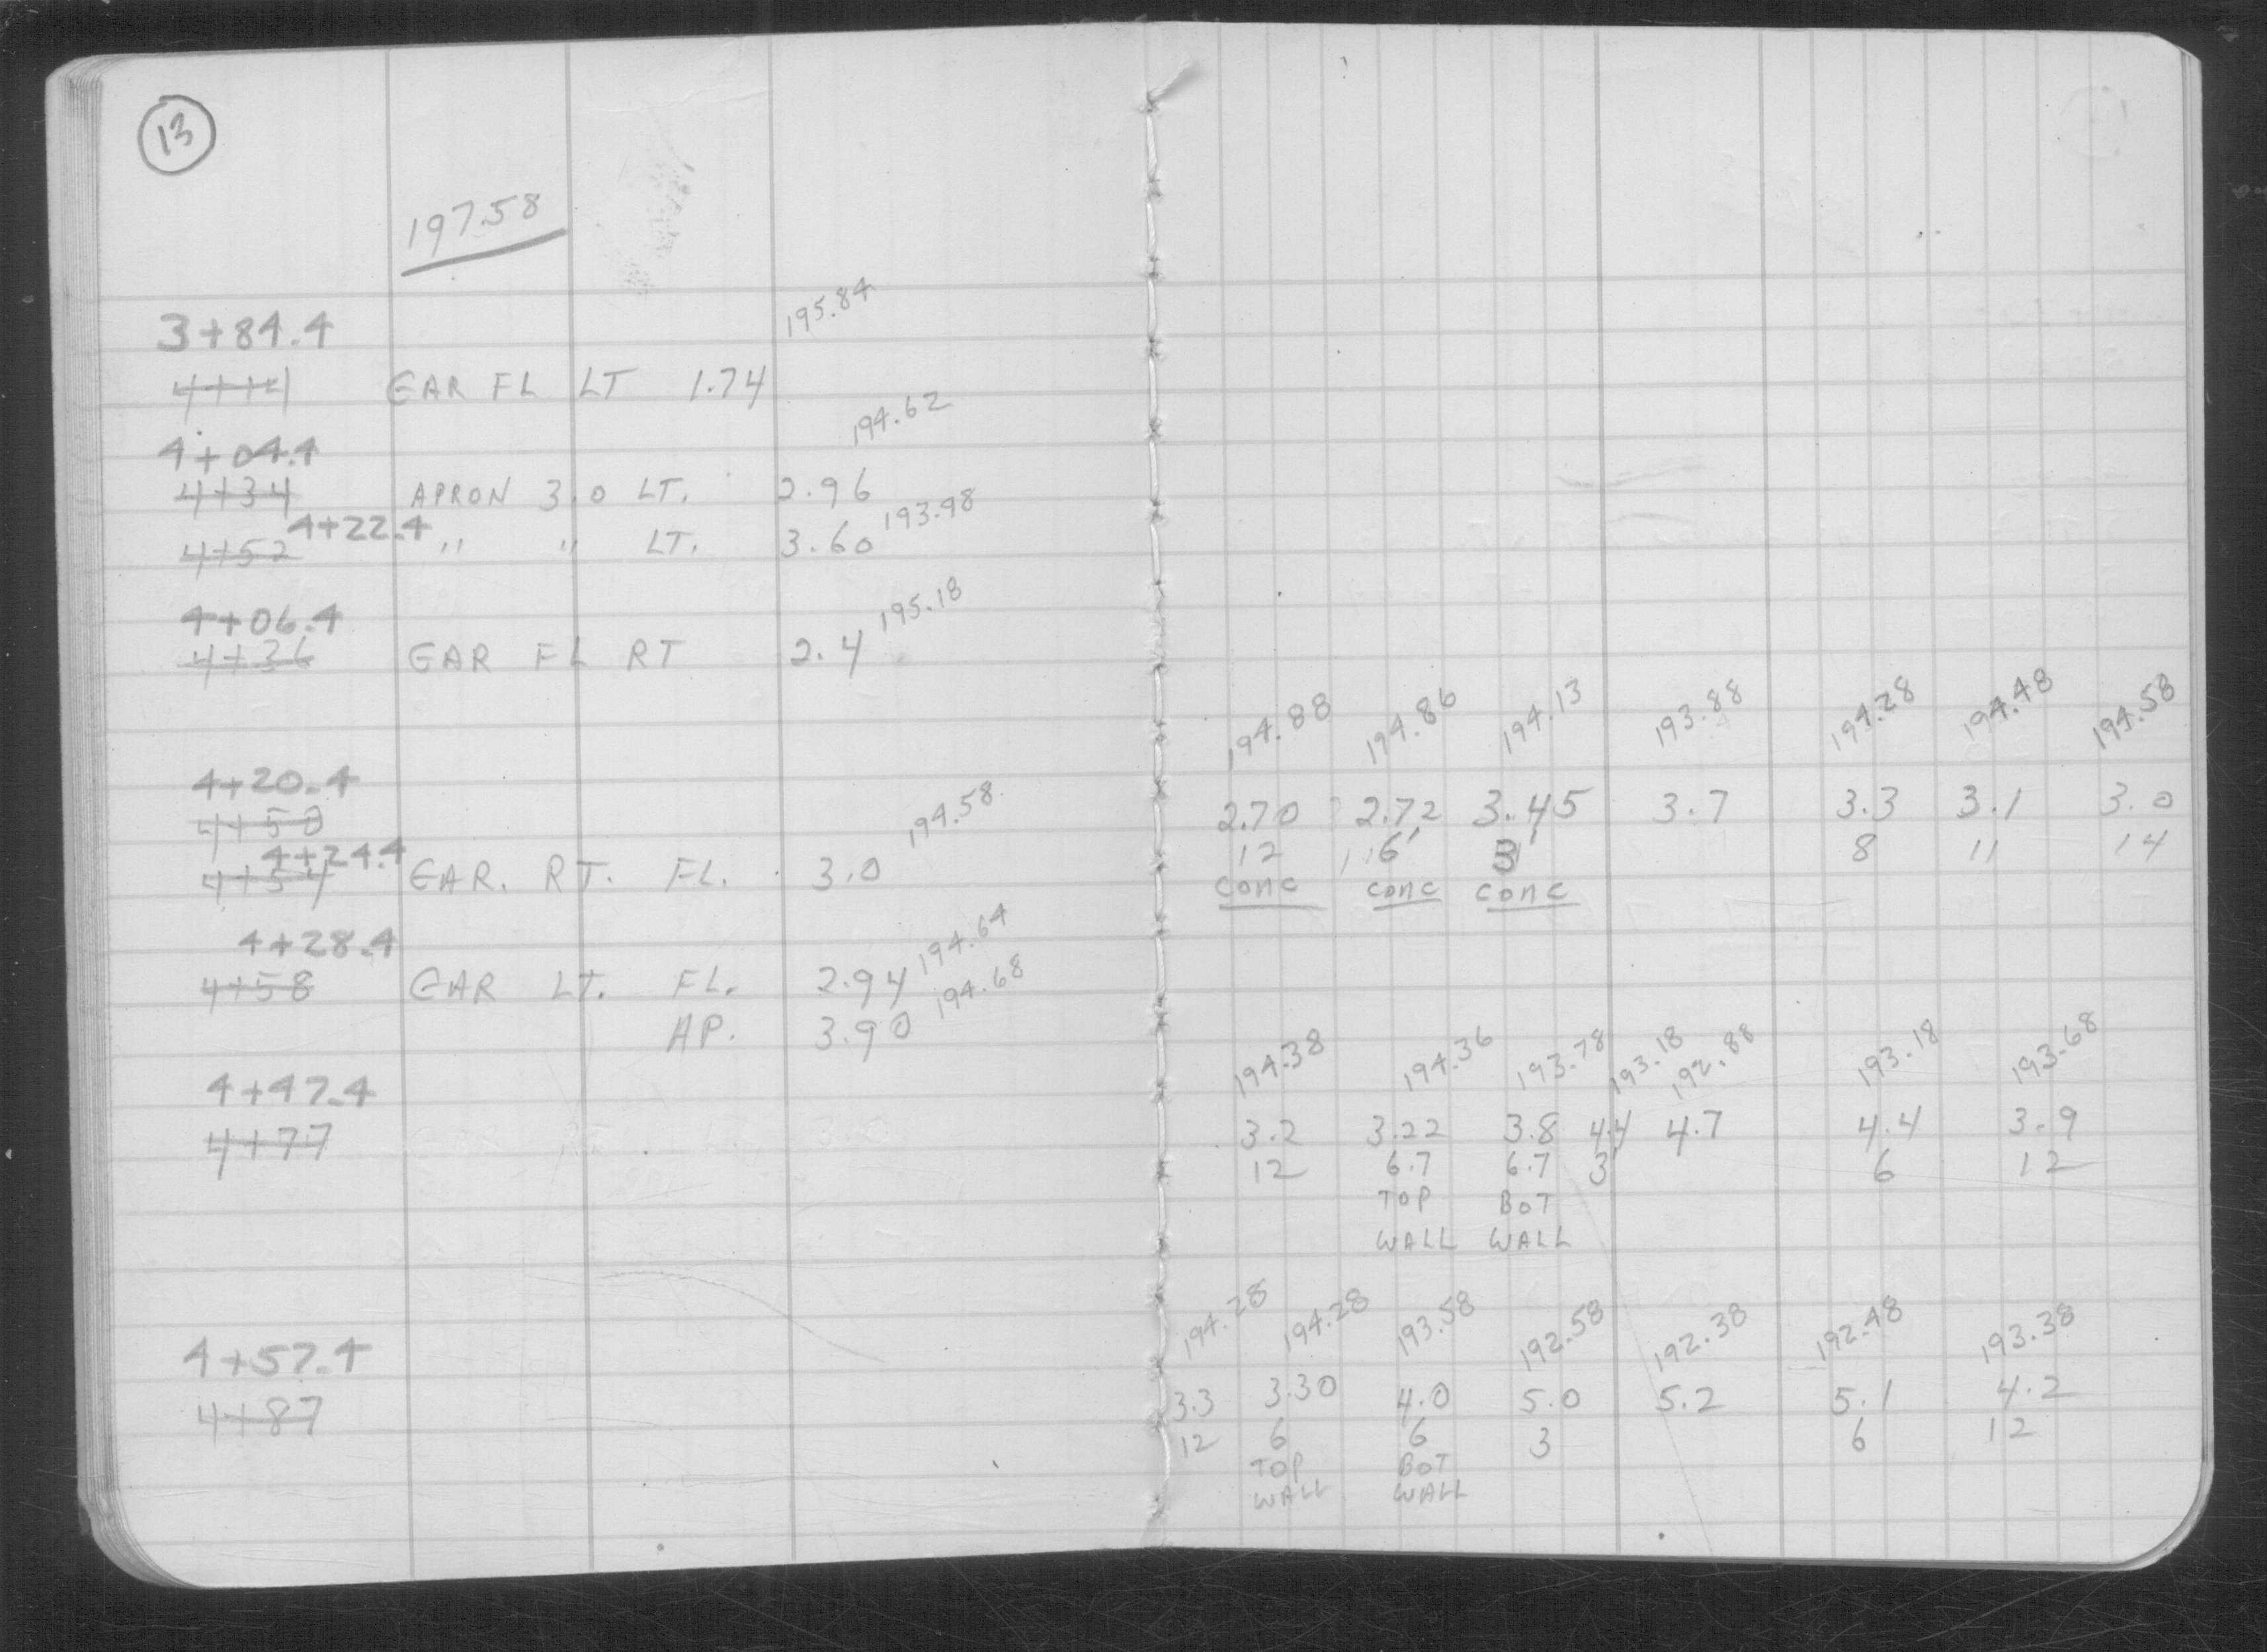 13
197.58
3+84.4
195.84
4+14 GAR FL LT 1.74
194.62
4+04.4
4+34 APRON 3.0 LT. 2.96
4+52 4+22.4 " " LT. 3.60 193.98
195.18
4+06.4
4+36 GAR FL RT 2.4
4+20.4
4+50
194.58
4+24.4
4+54 GAR. RT. FL. 3.0
4+28.4
194.64
4+58 GAR LT. FL. 2.94
194.68
AP. 3.90
4+47.4
4+77
4+57.4
4+87
194.88 194.86 194.13 193.88 194.28 194.48 194.58
2.70 2.72 3.45 3.7 3.3 3.1 3.0
12 6' 3' 8 11 14
CONC CONC CONC
194.38 194.36 193.78 193.18 192.88 193.18 193.68
3.2 3.22 3.8 4.4 4.7 4.4 3.9
12 6.7 6.7 3' 6 12
TOP BOT
WALL WALL
194.28 194.28 193.58 192.58 192.38 192.48 193.38
3.3 3.30 4.0 5.0 5.2 5.1 4.2
12 6 6 3 6 12
TOP BOT
WALL WALL